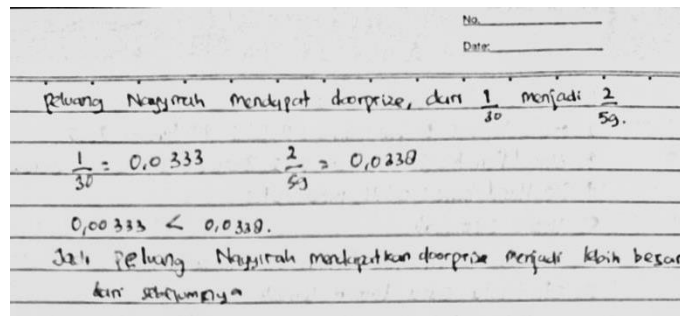 No.
Date:
Peluang Nagyirah mendapat doorprize, dari 1/30 menjadi 2/59.
1/30 = 0,0333 2/59 = 0,0338
0,00333 < 0,0338.
Jadi peluang Nayyirah mendapatkan doorprize menjadi lebih besar
dari sebelumnya